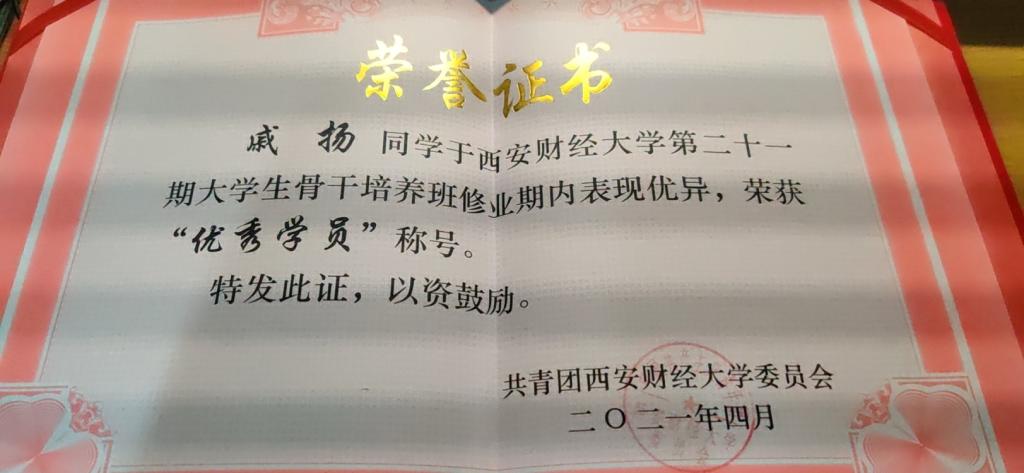 荣誉证书
戚扬 同学于西安财经大学第二十一
期大学生骨干培养班修业期内表现优异，荣获
“优秀学员”称号。
特发此证，以资鼓励。
共青团西安财经大学委员会
二〇二一年四月